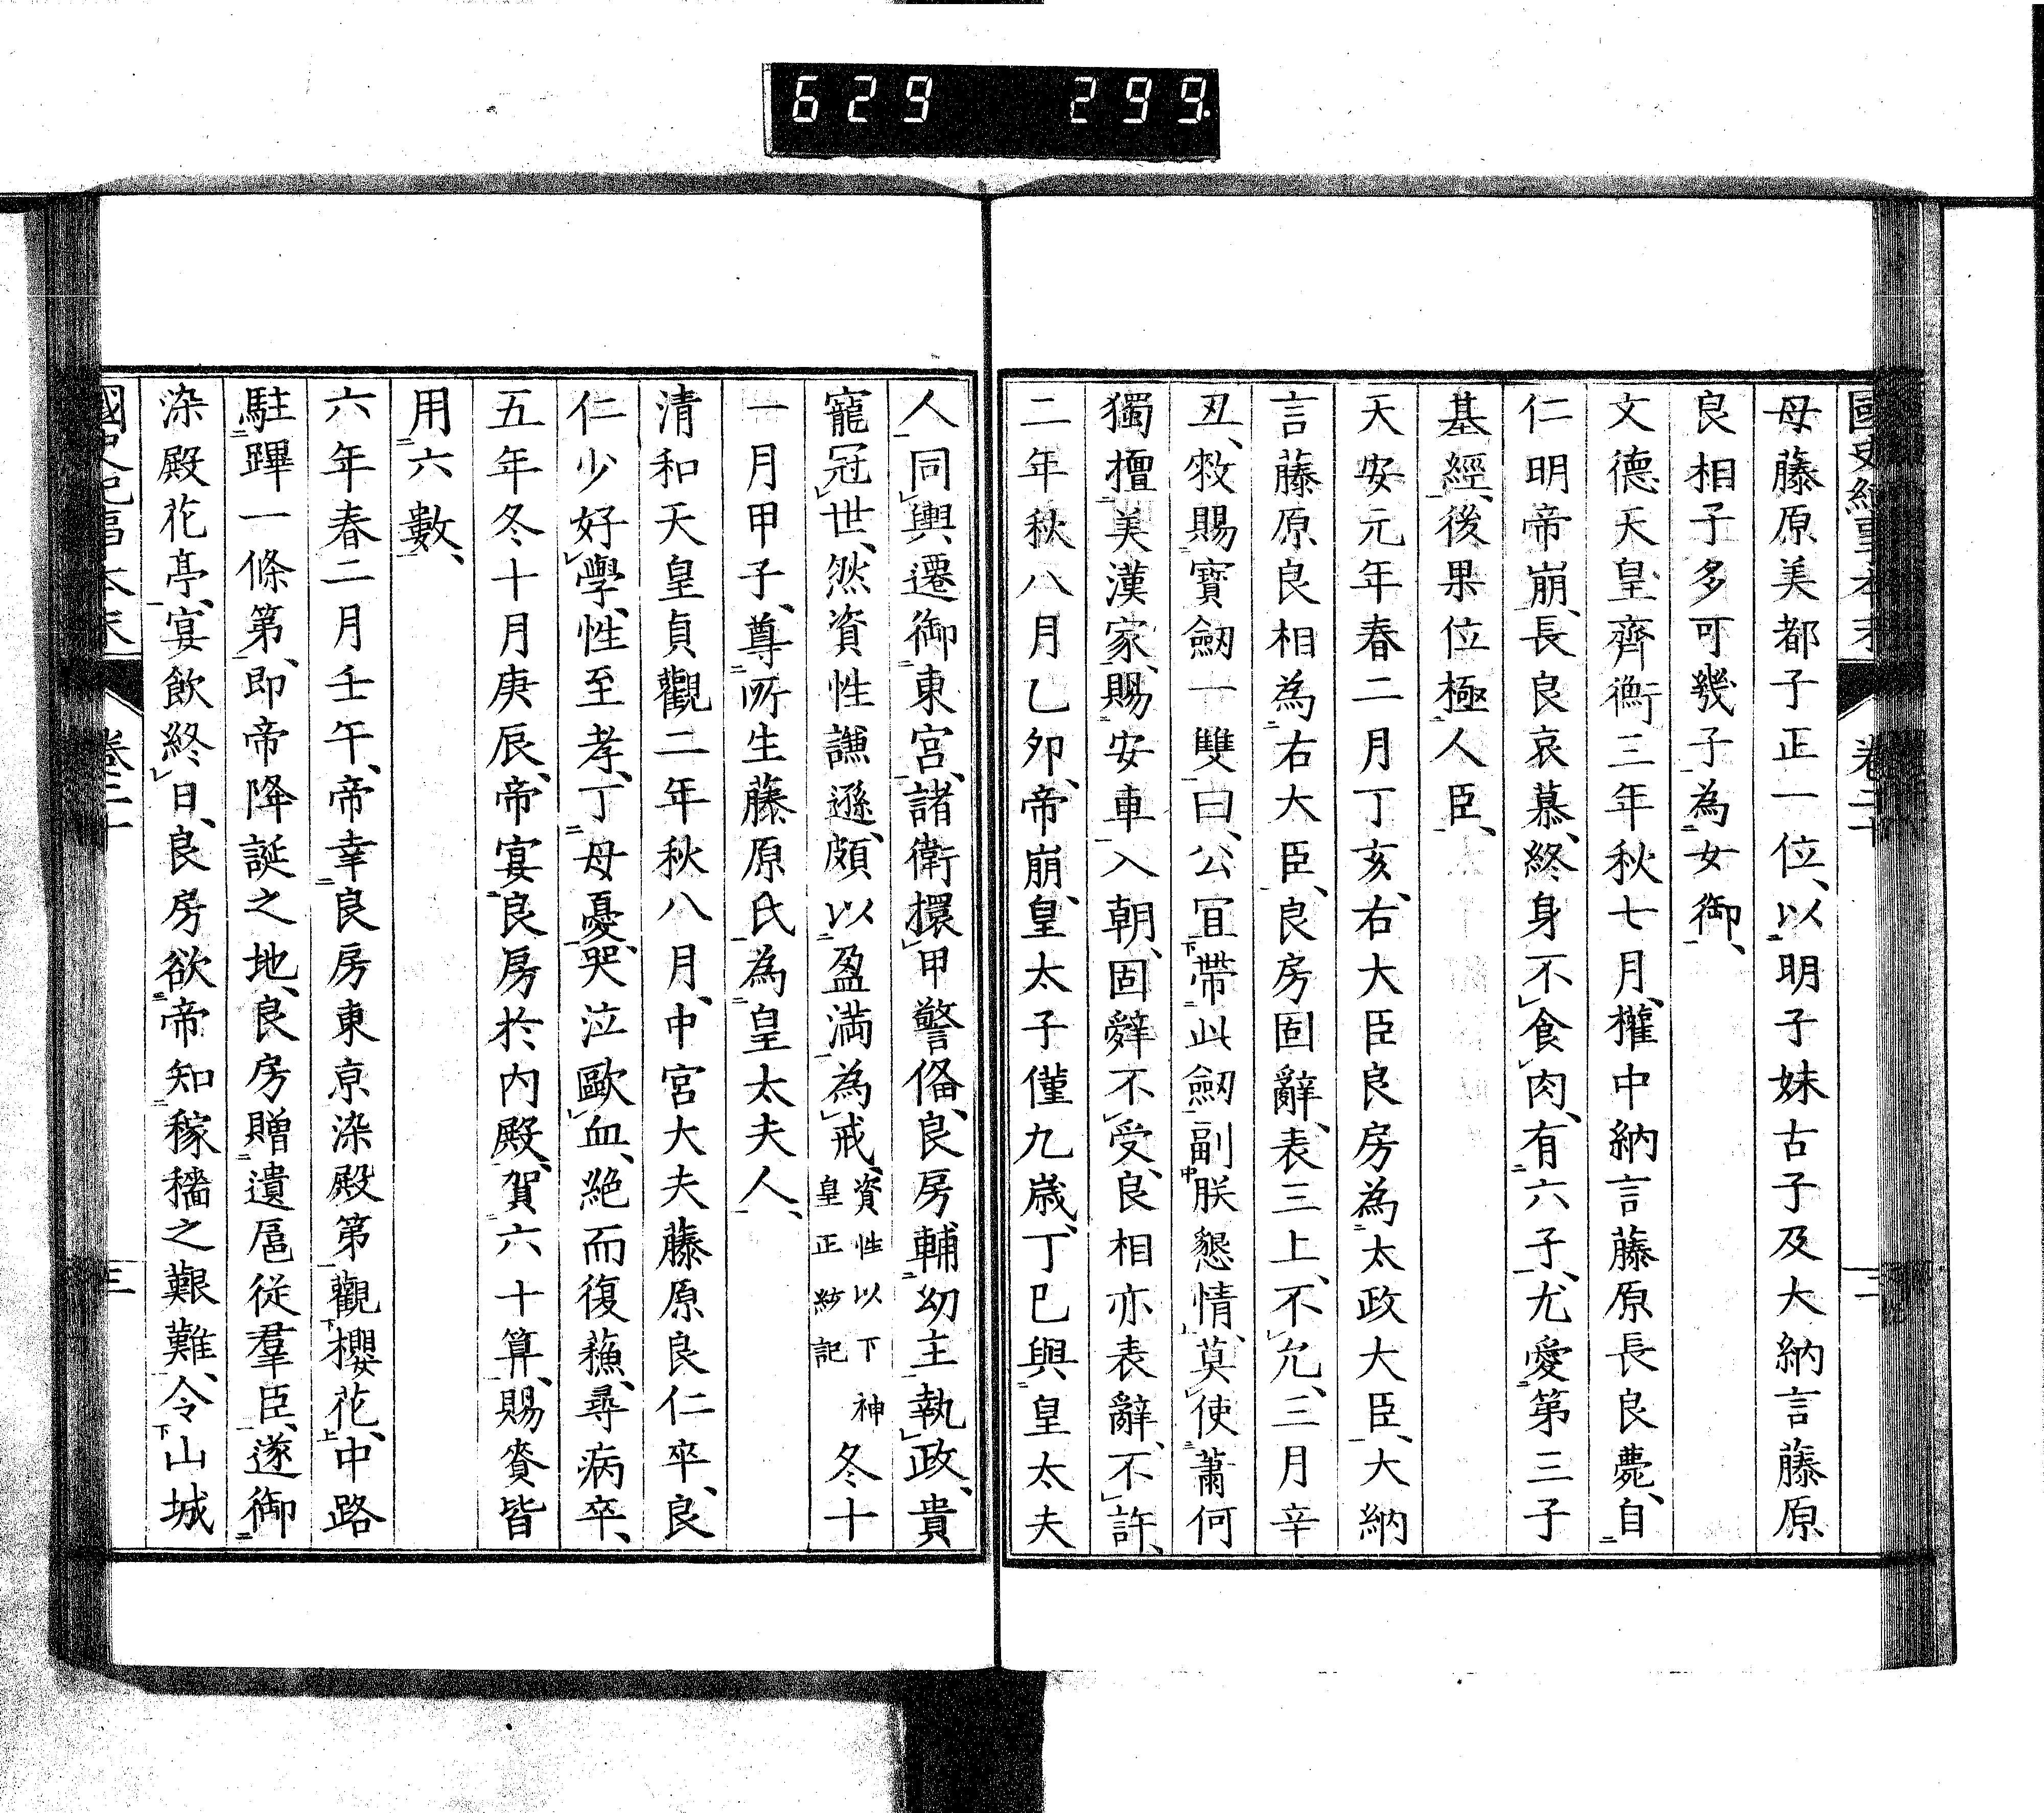 629 299
母藤原美都子正一位、以明子妹古子及大納言藤原
良相子多可幾子為女御、
文德天皇齊衡三年秋七月、權中納言藤原長良薨、自
仁明帝崩、長良哀慕、終身不食肉、有六子、尤愛第三子
基經、後果位極人臣、
天安元年春二月丁亥、右大臣良房為太政大臣、大納
言藤原良相為右大臣、良房固辭、表三上、不允、三月辛
丑、敕賜寶劔一雙曰、公宜帶此劔副朕懇情、莫使蕭何
獨擅美漢家、賜安車入朝、固辤不受、良相亦表辭、不許、
二年秋八月乙卯、帝崩、皇太子僅九歲、丁巳與皇太夫
人同輿遷御東宮、諸衛擐甲警俻、良房輔幼主執政、貴
寵冠世、然資性謙遜、頗以盈滿為戒、資性以下神皇正紗記冬十
一月甲子、尊所生藤原氏為皇太夫人、
清和天皇貞觀二年秋八月、中宮大夫藤原良仁卒、良
仁少好學、性至孝、丁母憂、哭泣歐血、絕而復蘓、尋病卒、
五年冬十月庚辰、帝宴良房於内殿、賀六十算、賜賚皆
用六數、
六年春二月壬午、帝幸良房東亰染殿第觀櫻花、中路
駐蹕一條第、即帝降誕之地、良房贈遺扈従羣臣、遂御
染殿花亭、宴飲終日、良房欲帝知稼穡之艱難、令山城
卷二十
三